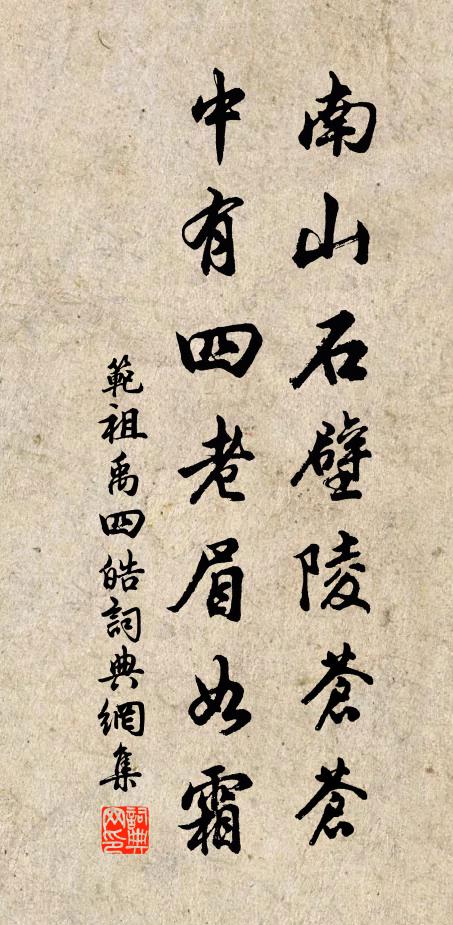 南山石壁陵蒼蒼
中有四老眉如霜
範祖禹四皓詞典網集
詞典網印